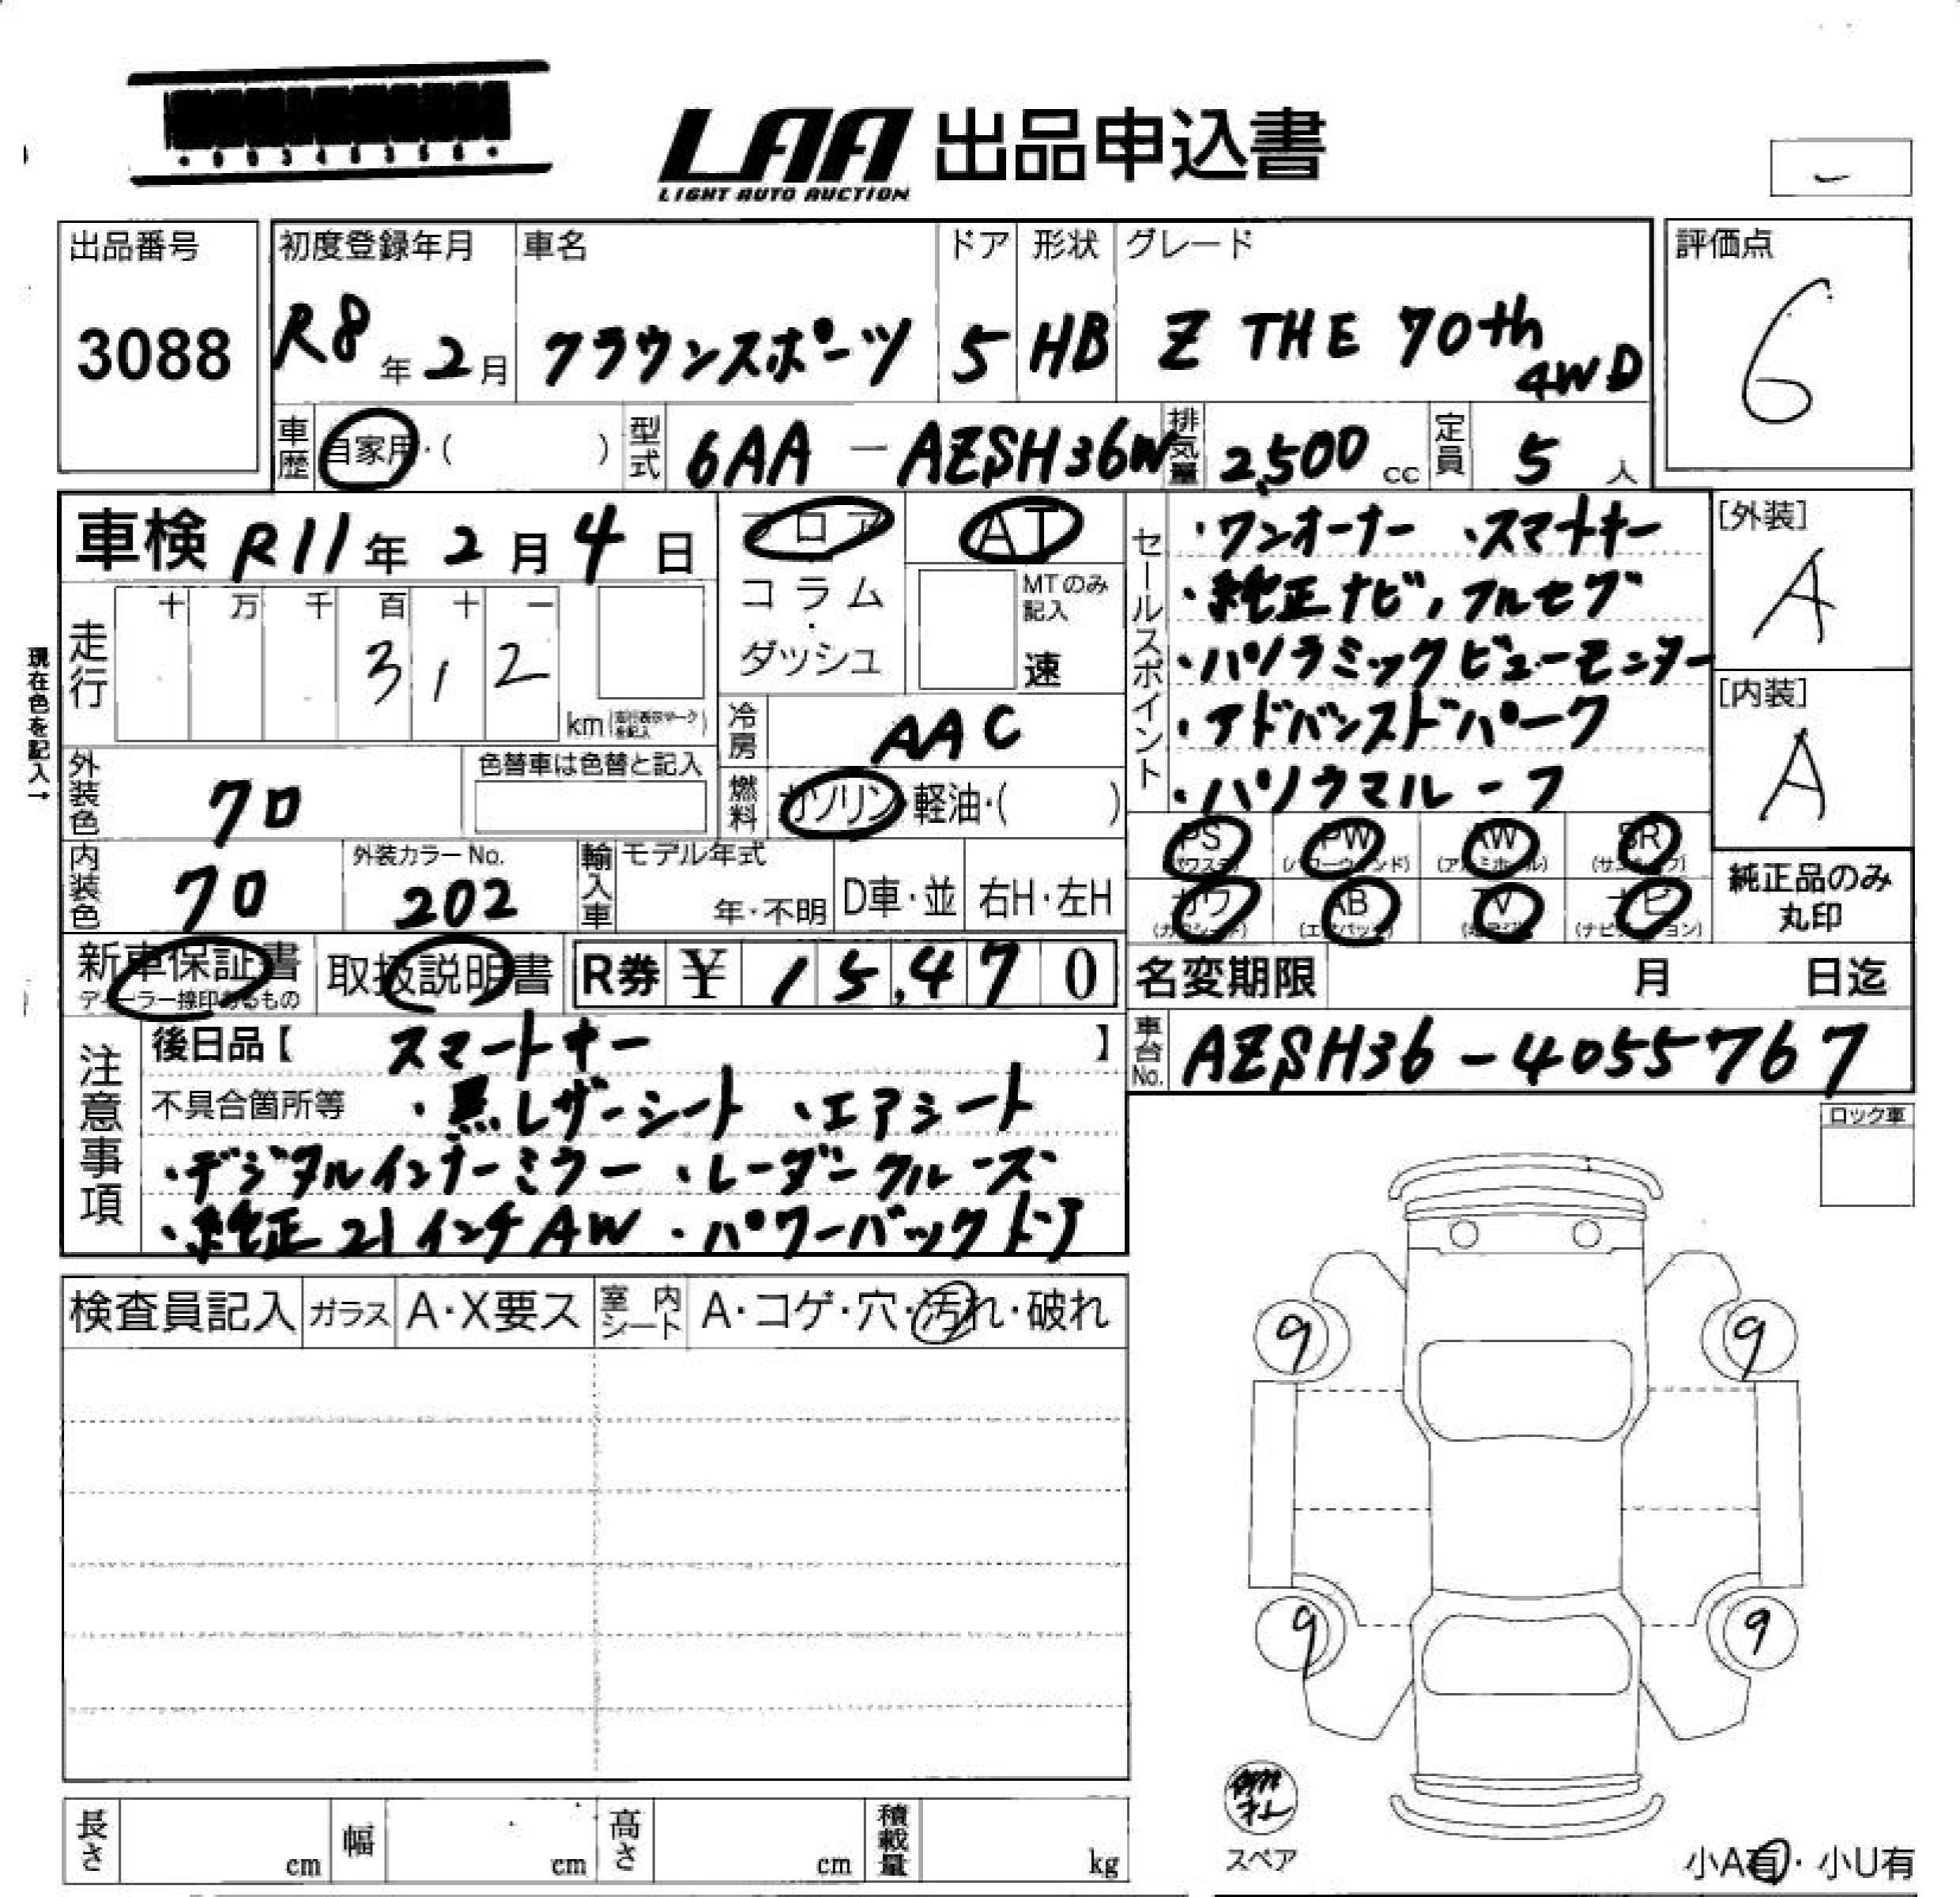 LAA 出品申込書
LIGHT AUTO AUCTION
出品番号
3088
初度登録年月
R8年2月
車名
クラウンスポーツ
ドア
5
形状
HB
グレード
Z THE 70th
4WD
評価点
6
車歴 自家用・( )
型式 6AA-AZSH36W
排気量 2,500cc
定員 5人
車検 R11年2月4日
フロア
コラム
・
ダッシュ
AT
MTのみ記入
速
セールスポイント
・ワンオーナー ・スマートキー
・純正ナビ,フルセグ
・パノラミックビューモニター
・アドバンスドパーク
・パノラマルーフ
[外装]
A
[内装]
A
現在色を記入→
走行
十 万 千 百 十 一
312
km
冷房 AAC
外装色 クロ
色替車は色替と記入
燃料 ガソリン・軽油・( )
内装色 クロ
外装カラーNo.
202
輸入車
モデル年式
年・不明
D車・並
右H・左H
PS PW AW SR
(パワステ) (パワーウィンド) (アルミホイール) (サンルーフ)
カワ AB TV ナビ
(カワシート) (エアバック) (ナビゲーション)
純正品のみ
丸印
新車保証書
ディーラー捺印あるもの
取扱説明書
R券 ¥15,470
名変期限 月 日迄
車台No. AZSH36-4055767
注意事項
後日品【 スマートキー 】
不具合箇所等 ・黒レザーシート ・エアシート
・デジタルインナーミラー ・レーダークルーズ
・純正21インチAW ・パワーバックドア
ロック車
検査員記入 ガラス A・X要ス 室内シート A・コゲ・穴・汚れ・破れ
9 9
9 9
スペア
小A有・小U有
長さ cm 幅 cm 高さ cm 積載量 kg